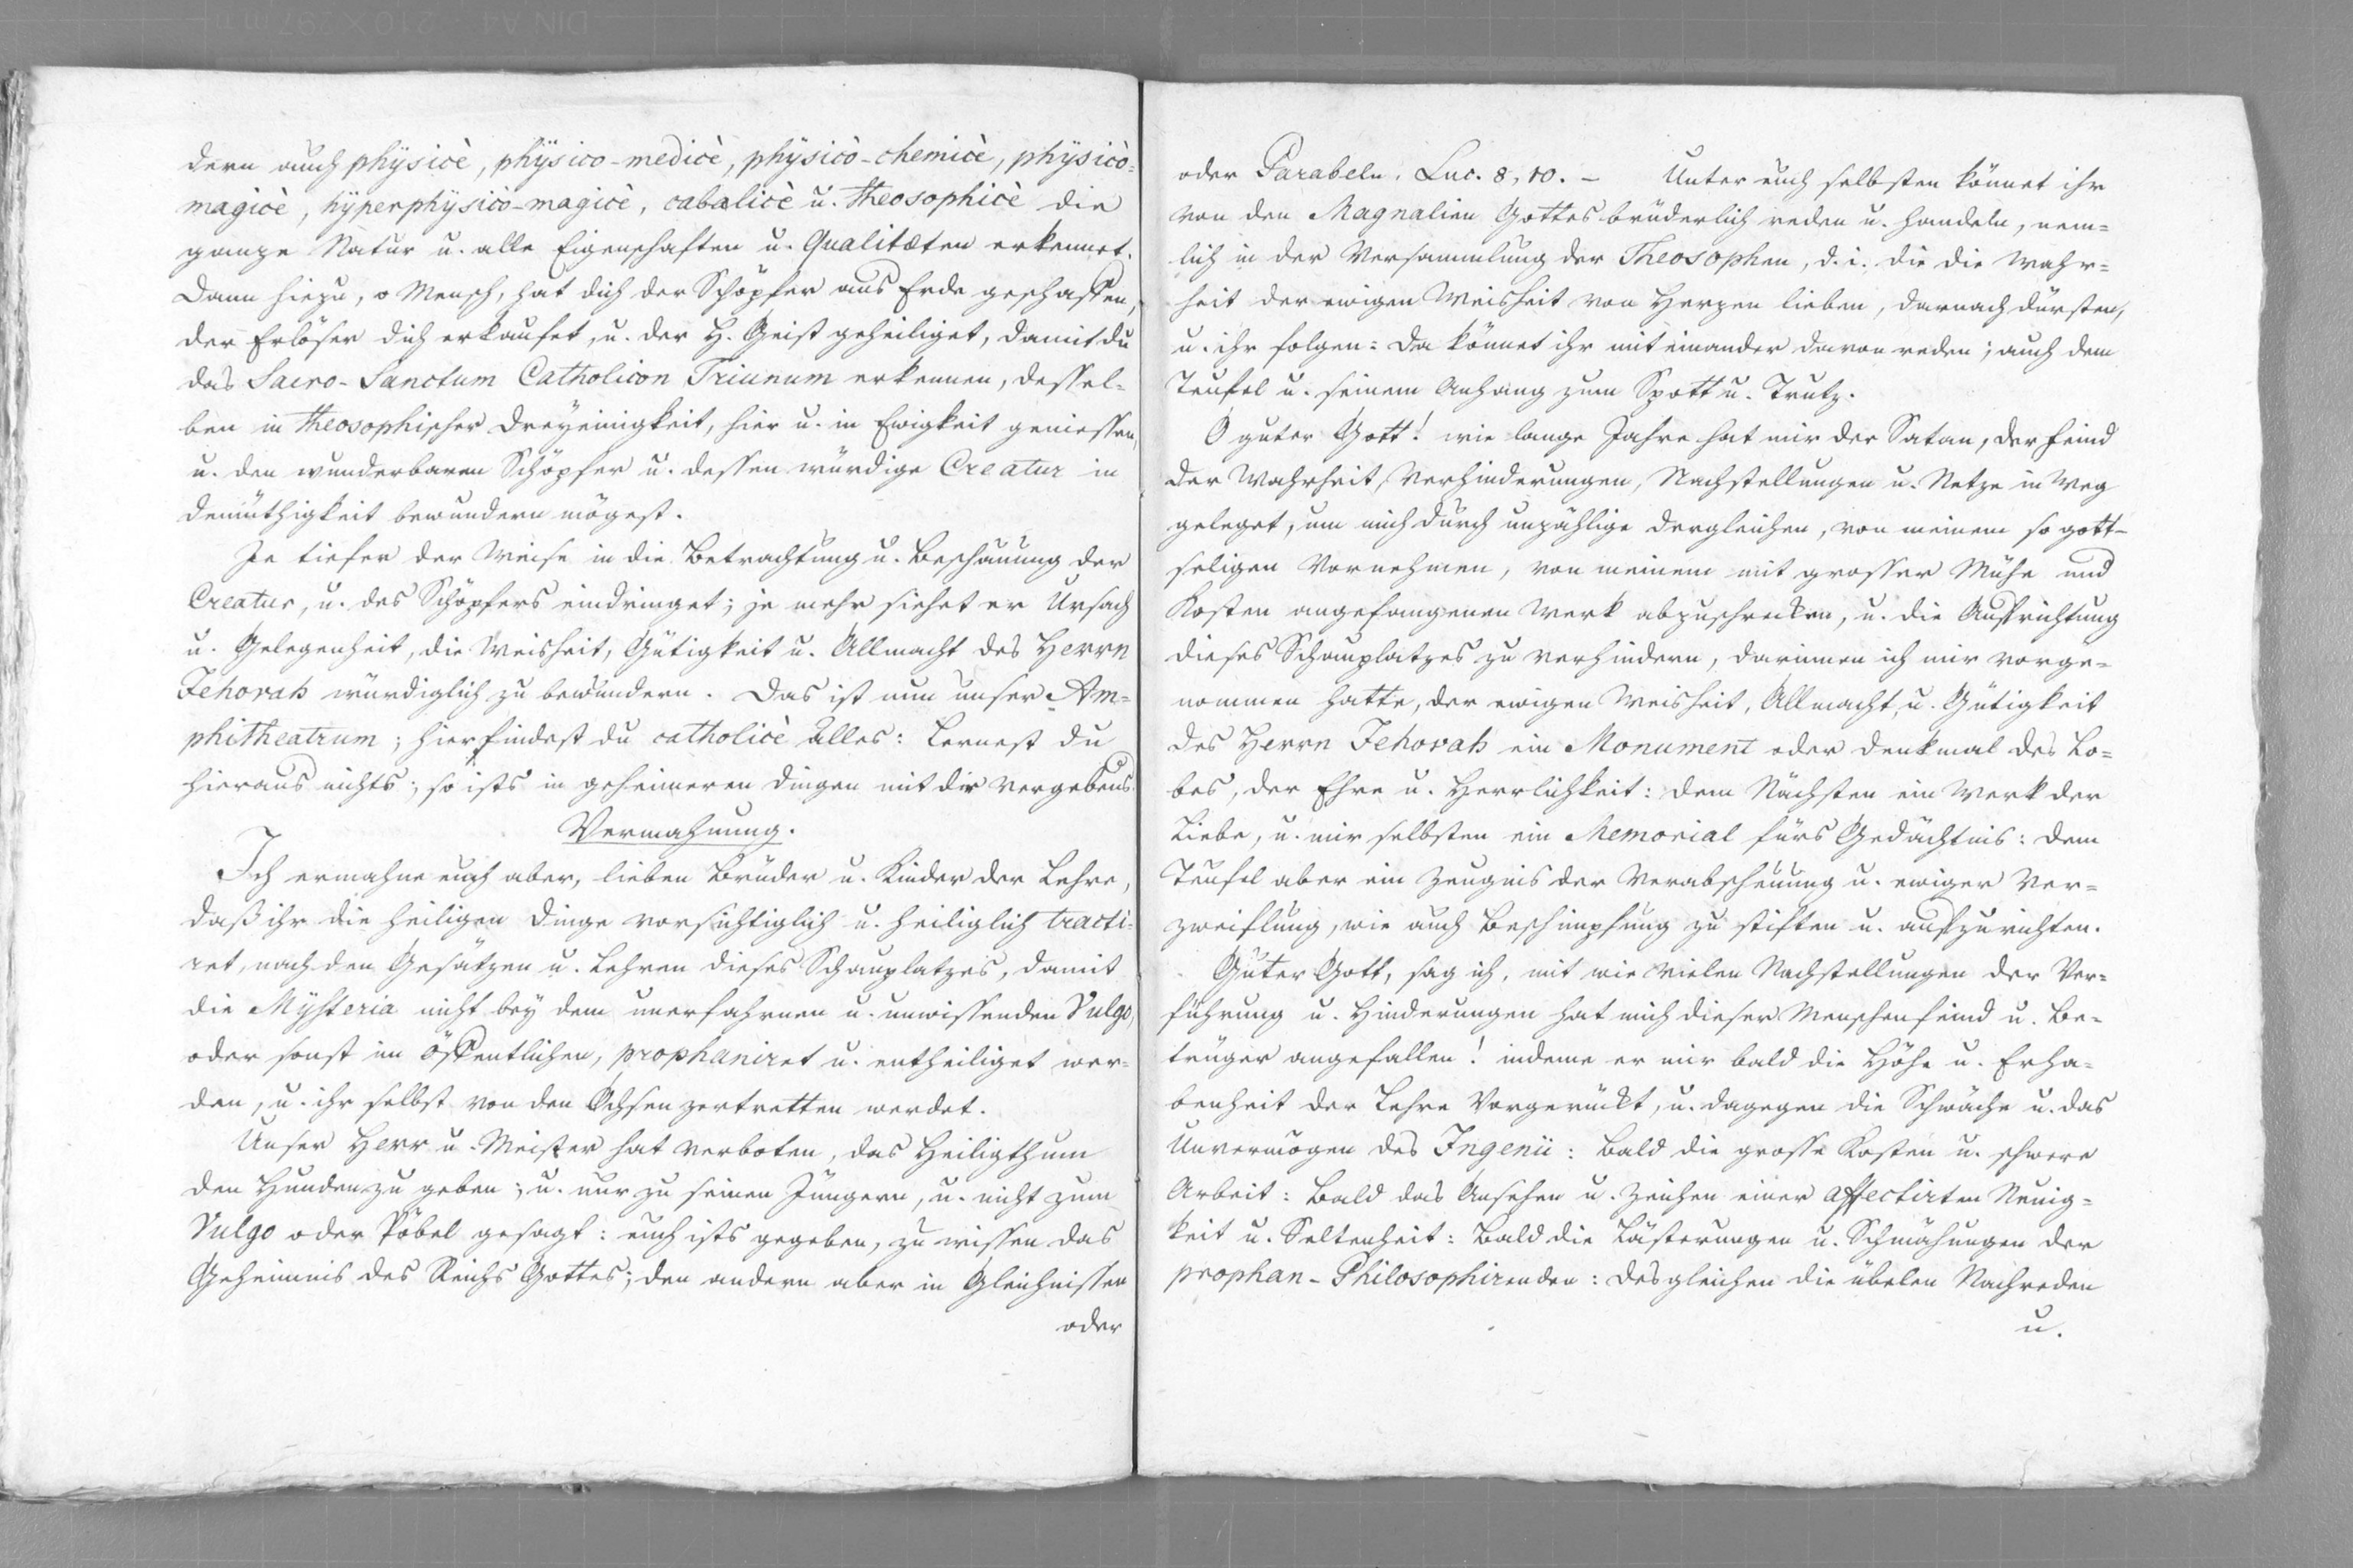 dern auch physicè, physico-medicè, physicò-chemicè, physicò-
magicè, hyperphysicò-magicè, cabalicè u. theosophicè die
ganze Natur u. alle Eigenschaften u. Qualitæten erkennet.
Dann hiezu, o Mensch, hat dich der Schöpfer aus Erde geschaffen,
der Erlöser dich erkaufet, u. der H. Geist geheiliget, damit du
das Sacro-Sanctum Catholicon Triunum erkennen, dessel-
ben in theosophischer Dreyeinigkeit, hier u. in Ewigkeit geniessen,
u. den wunderbaren Schöpfer u. dessen würdige Creatur in
Demüthigkeit bewundern mögest.
Je tiefer der Weise in die Betrachtung u. Beschauung der
Creatur, u. des Schöpfers eindringet; je mehr siehet er Ursach
u. Gelegenheit, die Weisheit, Gütigkeit u. Allmacht des Herrn
Jehovah würdiglich zu bewundern. Das ist nun unser Am-
phitheatrum; hier findest du catholicè alles: Lernest du
hieraus nichts; so ists in geheimeren Dingen mit dir vergebens.
Vermahnung.
Ich ermahne euch aber, lieben Brüder u. Kinder der Lehre,
daß ihr die heiligen Dinge vorsichtiglich u. heiliglich tracti-
ret, nach den Gesätzen u. Lehren dieses Schauplatzes, damit
die Mysteria nicht bey dem unerfahrnen u. unwissenden Vulgo,
oder sonst im öffentlichen, prophaniret u. entheiliget wer-
den, u. ihr selbst von den Ochsen zertretten werdet.
Unser Herr u. Meister hat verboten, das Heiligthum
den Hunden zu geben; u. nur zu seinen Jüngern, u. nicht zum
Vulgo oder Pöbel gesagt: euch ists gegeben, zu wissen das
Geheimnis des Reichs Gottes; den andern aber in Gleichnissen
oder
oder Parabeln. Luc. 8, 10. – Unter euch selbsten könnet ihr
von den Magnalien Gottes brüderlich reden u. handeln, nem-
lich in der Versammlung der Theosophen, d. i. die die Wahr-
heit der ewigen Weisheit von Herzen lieben, darnach dürsten,
u. ihr folgen: Da könnet ihr mit einander davon reden; auch dem
Teufel u. seinem Anhang zum Spott u. Trutz.
O guter Gott! wie lange Jahre hat mir der Satan, der Feind
der Wahrheit, Verhinderungen, Nachstellungen u. Netze in Weg
geleget, um mich durch unzählige dergleichen, von meinem so gott-
seligen Vornehmen, von meinem mit grosser Mühe und
Kosten angefangenen Werk abzuschrecken, u. die Aufrichtung
dieses Schauplatzes zu verhindern, darinnen ich mir vorge-
nommen hatte, der ewigen Weisheit, Allmacht, u. Gütigkeit
des Herrn Jehovah ein Monument oder Denkmal des Lo-
bes, der Ehre u. Herrlichkeit: dem Nächsten ein Werk der
Liebe, u. mir selbsten ein Memorial fürs Gedächtnis: dem
Teufel aber ein Zeugnis der Verabscheuung u. ewiger Ver-
zweiflung, wie auch Beschimpfung zu stiften u. aufzurichten.
Guter Gott, sag ich, mit wie vielen Nachstellungen der Ver-
führung u. Hinderungen hat mich dieser Menschenfeind u. Be-
trüger angefallen! indeme er mir bald die Höhe u. Erha-
benheit der Lehre vorgerückt, u. dagegen die Schwäche u. das
Unvermögen des Ingenii: Bald die grosse Kosten u. schwere
Arbeit: Bald das Ansehen u. Zeichen einer affectirten Neuig-
keit u. Seltenheit: Bald die Lästerungen u. Schmähungen der
prophan-Philosophirenden: desgleichen die übelen Nachreden
u.